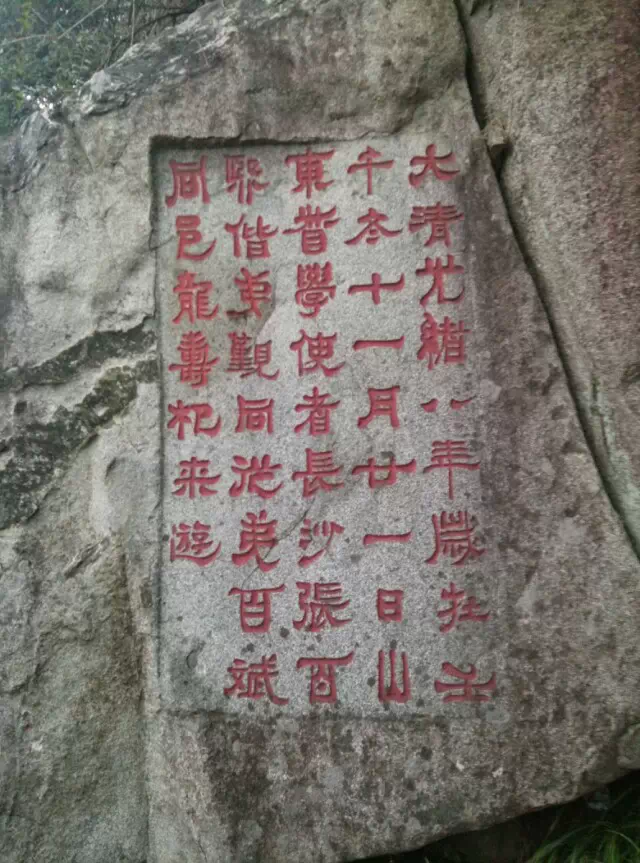 大清光緒八年歲在壬
午冬十一月廿一日山
東督學使者長沙張百
熙偕觀同從弟百斌
同邑龍壽杞來遊